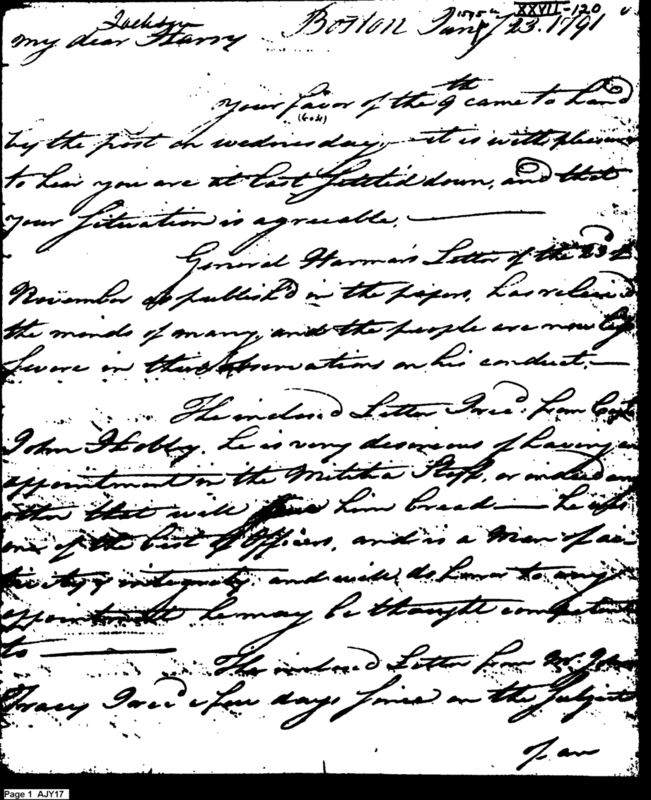 XXVII-120
Jackson
My dear Harry Boston Jany 23. 1791
your favor of the 9th came to hand
by the post on wednesday, it is with pleasure
to hear you are at last settled down, and that
your situation is agreeable. ———
General Harmar's Letter of the 23d
November as publish'd in the papers, has reliev'd
the minds of many, and the people are now less
severe in their observations on his conduct. —
The inclosed Letter I rec'd from Capt
John Hobby, he is very desireous of having an
appointment in the Militia Staff, or indeed any
other that will give him bread — he was
one of the best of Officers, and is a Man of ac-
tivity & integrity and will do honor to any
appointment he may be thought competent
to ———
The inclosed Letter from Mr. John
Tracy I rec'd a few days since on the subject
of an
Page 1 AJY17